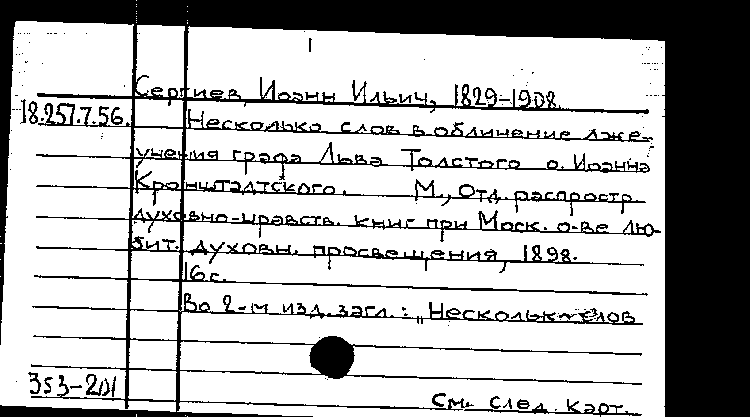 Сергиев, Иоанн Ильич, 1829-1908.
18.257.7.56.
Несколько слов в обличение лже-
учения графа Льва Толстого о. Иоанна
Кронштадтского. М., Отд. распростр.
духовно-нравств. книг при Моск. о-ве лю-
бит. духовн. просвещения, 1898.
16 с.
Во 2-м изд. загл.: „Несколько слов
353-201
См. след. карт.